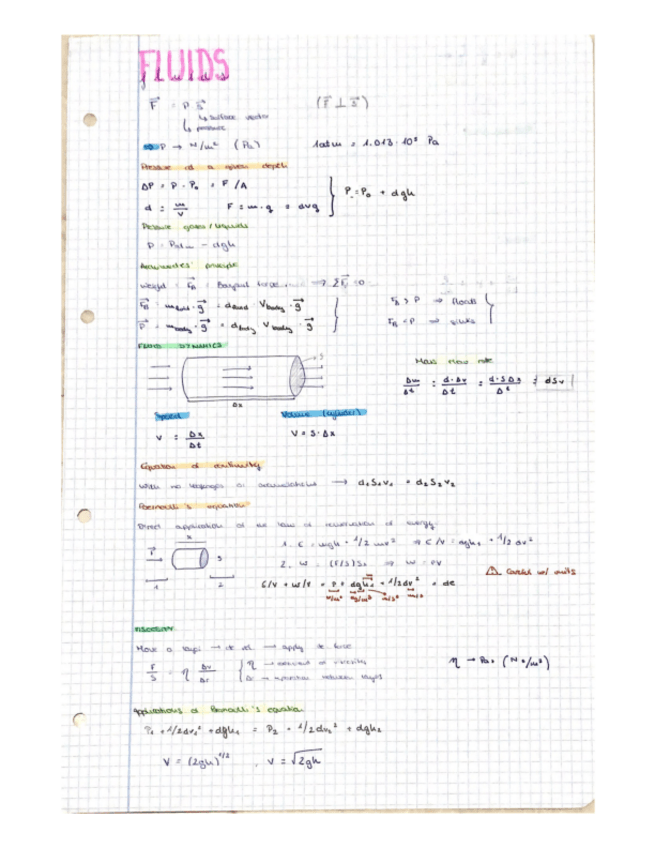 FLUIDS
fluids
F⃗ = P S⃗ (F⃗ ⊥ S⃗)
↳ surface vector
↳ pressure
⇒ P → N/m² (Pa) 1 atm = 1.013 · 10⁵ Pa
Pressure at a given depth
ΔP = P - P₀ = F/A
P = P₀ + dgh
d = m/V F = m · g = dVg
Pressure gases / liquids
P = Patm - dgh
Archimedes' principle
Weight = F⃗B = Buoyant force ⇒ ΣF⃗ = 0
F⃗B = mfluid · g⃗ = dfluid · Vbody · g⃗ FB > P ⇒ floats
P⃗ = mbody · g⃗ = dbody Vbody · g⃗ FB < P ⇒ sinks
FLUID DYNAMICS
Mass flow rate
S
Δm/Δt = d · Δv/Δt = d · S Δx/Δt = dSv
Δx
Speed Volume (cylinder)
V = Δx/Δt V = S · Δx
Equation of continuity
With no leakages or accumulations → d₁S₁v₁ = d₂S₂v₂
Bernoulli's equation
Direct application of the law of conservation of energy
1. E = mgh + 1/2 mv² ⇒ E/V = dgh + 1/2 dv²
2. W = (F/S) S ⇒ W = PV
⚠ Careful w/ units
E/V + W/V = P + dgh + 1/2 dv²
N/m² kg/m³ m/s² m/s
VISCOSITY
Move a → apply
F/S = η Δv/Δr
η → of viscosity
Δr → separation between layers
η → Pa·s (N·s/m²)
Applications of Bernoulli's equation
P₁ + 1/2 dv₁² + dgh₁ = P₂ + 1/2 dv₂² + dgh₂
V = (2gh)^1/2 , V = √2gh